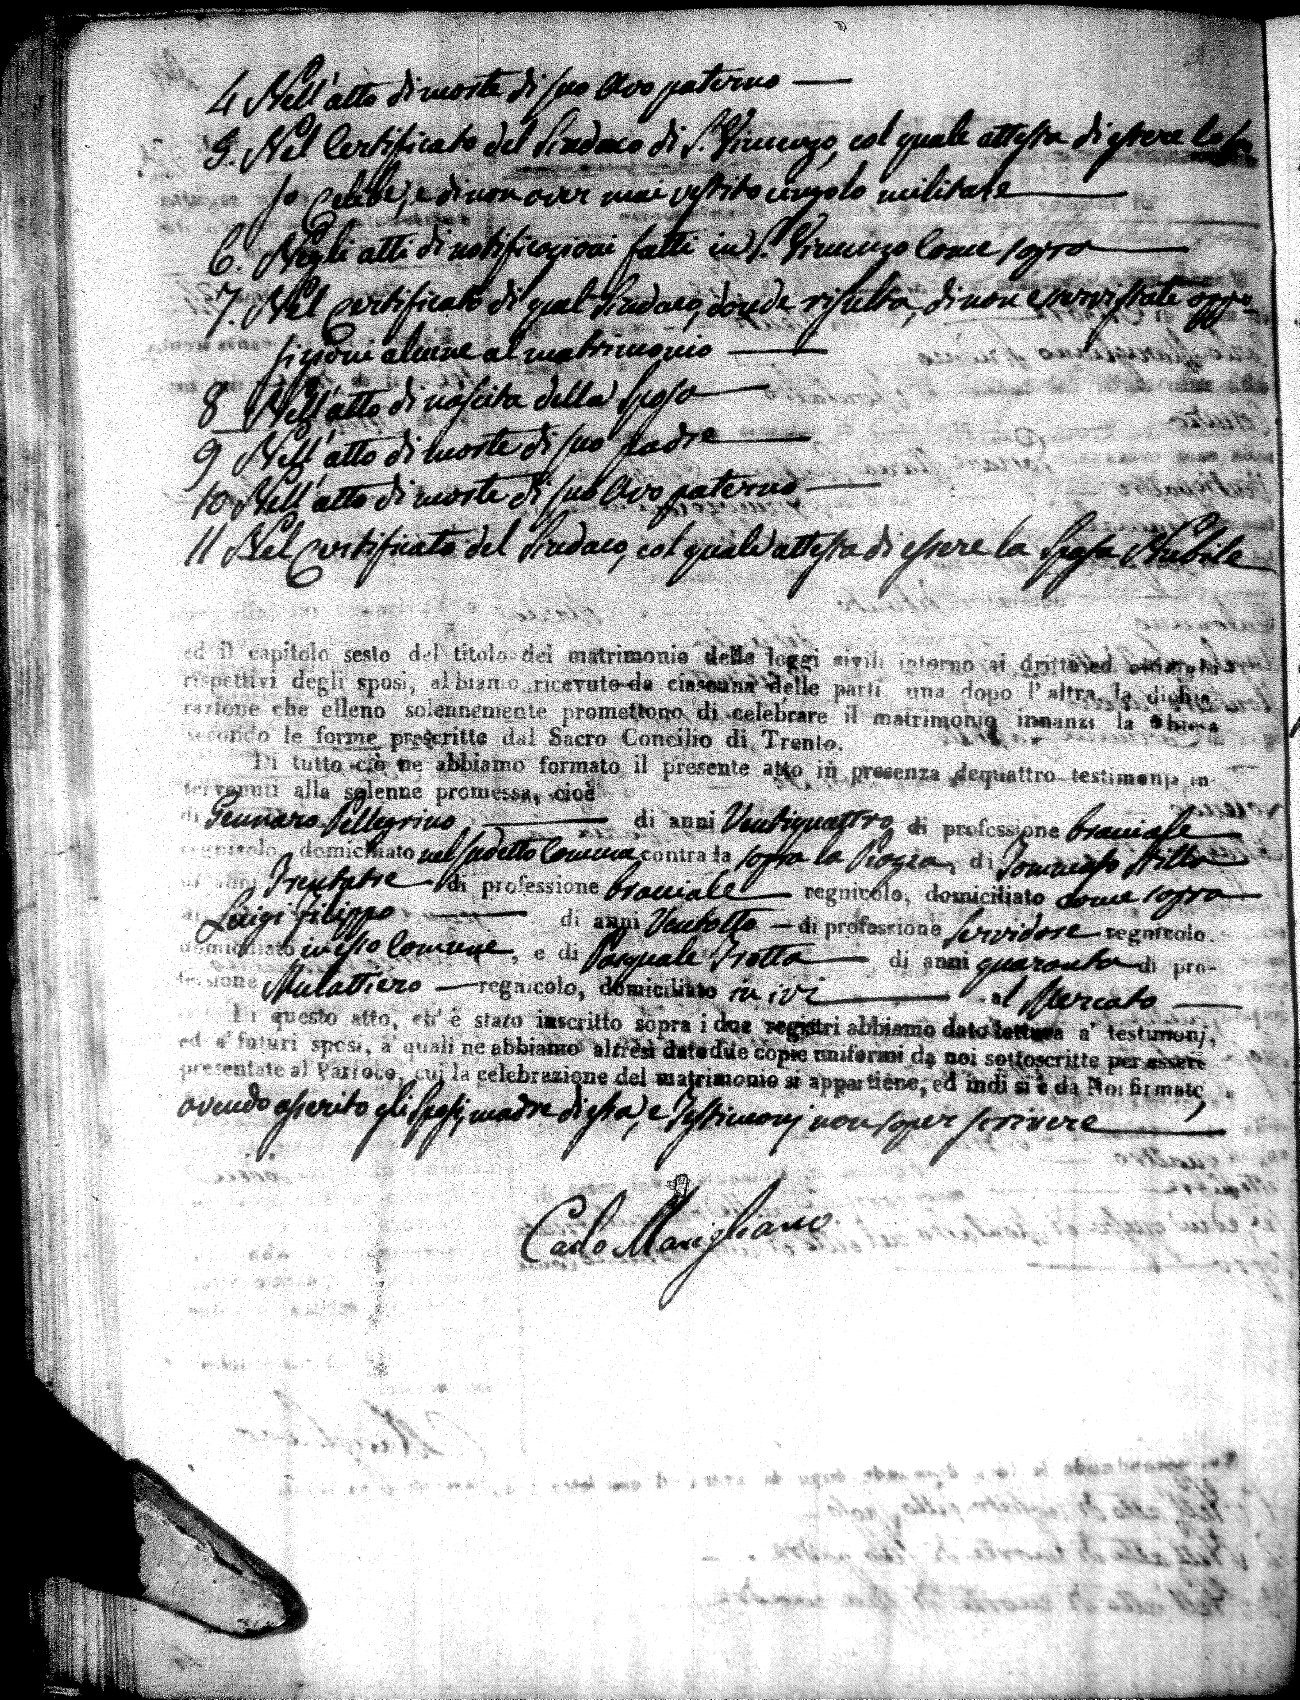 4 Nell'atto di morte di suo Avo paterno —
5. Nel Certificato del Sindaco di S. Vincenzo, col quale attesta di essere lo Spo
so Celibe, e di non aver mai vestito cingolo militare —
6. Negli atti di notificazioni fatti in S. Vincenzo Come sopra —
7. Nel certificato di quel Sindaco, donde risulta, di non esservi state oppo
sizioni alcune al matrimonio —
8 Nell'atto di nascita della Sposa —
9 Nell'atto di morte di suo padre —
10 Nell'atto di morte di suo Avo paterno —
11 Nel Certificato del Sindaco, col quale attesta di essere la Sposa Nubile
ed il capitolo sesto del titolo del matrimonio delle leggi civili intorno ai dritti ed obblighi
rispettivi degli sposi, abbiamo ricevuto da ciascuna delle parti una dopo l'altra, la dichia
razione che elleno solennemente promettono di celebrare il matrimonio innanzi la Chiesa
secondo le forme prescritte dal Sacro Concilio di Trento.
Di tutto ciò ne abbiamo formato il presente atto in presenza de quattro testimonj in-
tervenuti alla solenne promessa, cioè
di Gennaro Pellegrino — di anni Ventiquattro di professione bracciale
regnicolo, domiciliato nel sudetto Comune contrata sopra la Piazza, di Tommaso
di anni Trentatre di professione bracciale — regnicolo, domiciliato come sopra
Luigi Filippo — di anni Ventotto — di professione Servidore regnicolo.
domiciliato in esso Comune, e di Pasquale Trotta — di anni quaranta di pro-
fessione Mulattiero — regnicolo, domiciliato in ivi — al Mercato —
Di questo atto, ch'è stato inscritto sopra i due registri abbiamo dato lettura a' testimonj,
ed a' futuri sposi, a' quali ne abbiamo altresì date due copie uniformi da noi sottoscritte per essere
presentate al Parroco, cui la celebrazione del matrimonio si appartiene, ed indi si è da Noi firmato,
avendo asserito gli Sposi, madre di essa, e Testimonj non saper scrivere —
Carlo Marigliano